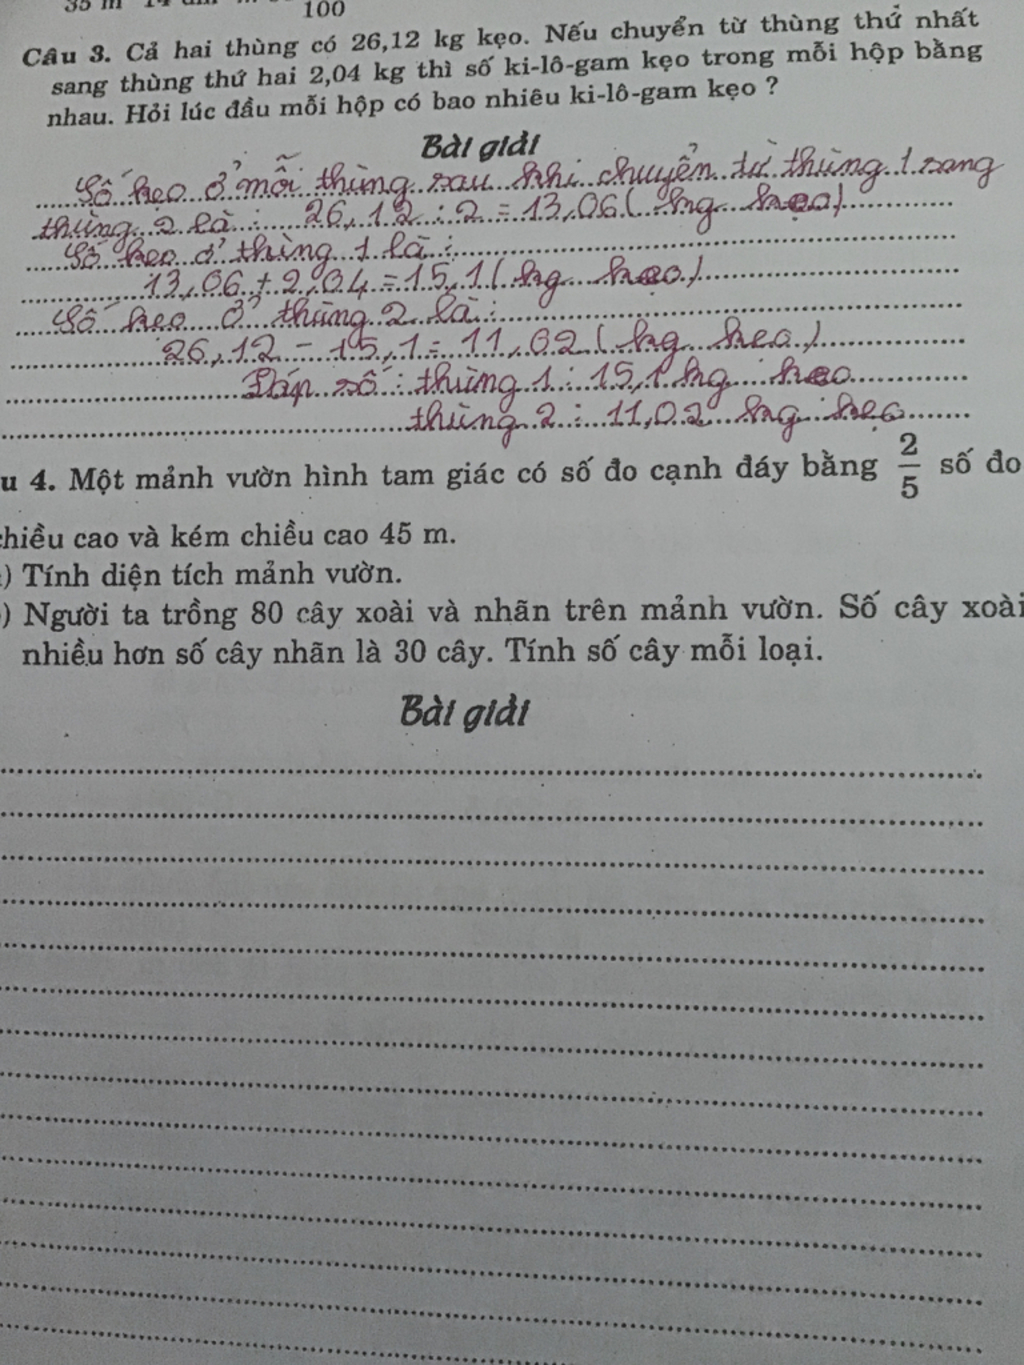 35 m 14 dm
100
Câu 3. Cả hai thùng có 26,12 kg kẹo. Nếu chuyển từ thùng thứ nhất
sang thùng thứ hai 2,04 kg thì số ki-lô-gam kẹo trong mỗi hộp bằng
nhau. Hỏi lúc đầu mỗi hộp có bao nhiêu ki-lô-gam kẹo ?
Bài giải
Số kẹo ở mỗi thùng sau khi chuyển từ thùng 1 sang
thùng 2 là : 26,12 : 2 = 13,06 ( kg kẹo)
Số kẹo ở thùng 1 là :
13,06 + 2,04 = 15,1 ( kg kẹo )
Số kẹo ở thùng 2 là :
26,12 - 15,1 = 11,02 ( kg kẹo )
Đáp số : thùng 1 : 15,1 kg kẹo
thùng 2 : 11,02 kg kẹo
u 4. Một mảnh vườn hình tam giác có số đo cạnh đáy bằng 2/5 số đo
chiều cao và kém chiều cao 45 m.
) Tính diện tích mảnh vườn.
) Người ta trồng 80 cây xoài và nhãn trên mảnh vườn. Số cây xoài
nhiều hơn số cây nhãn là 30 cây. Tính số cây mỗi loại.
Bài giải